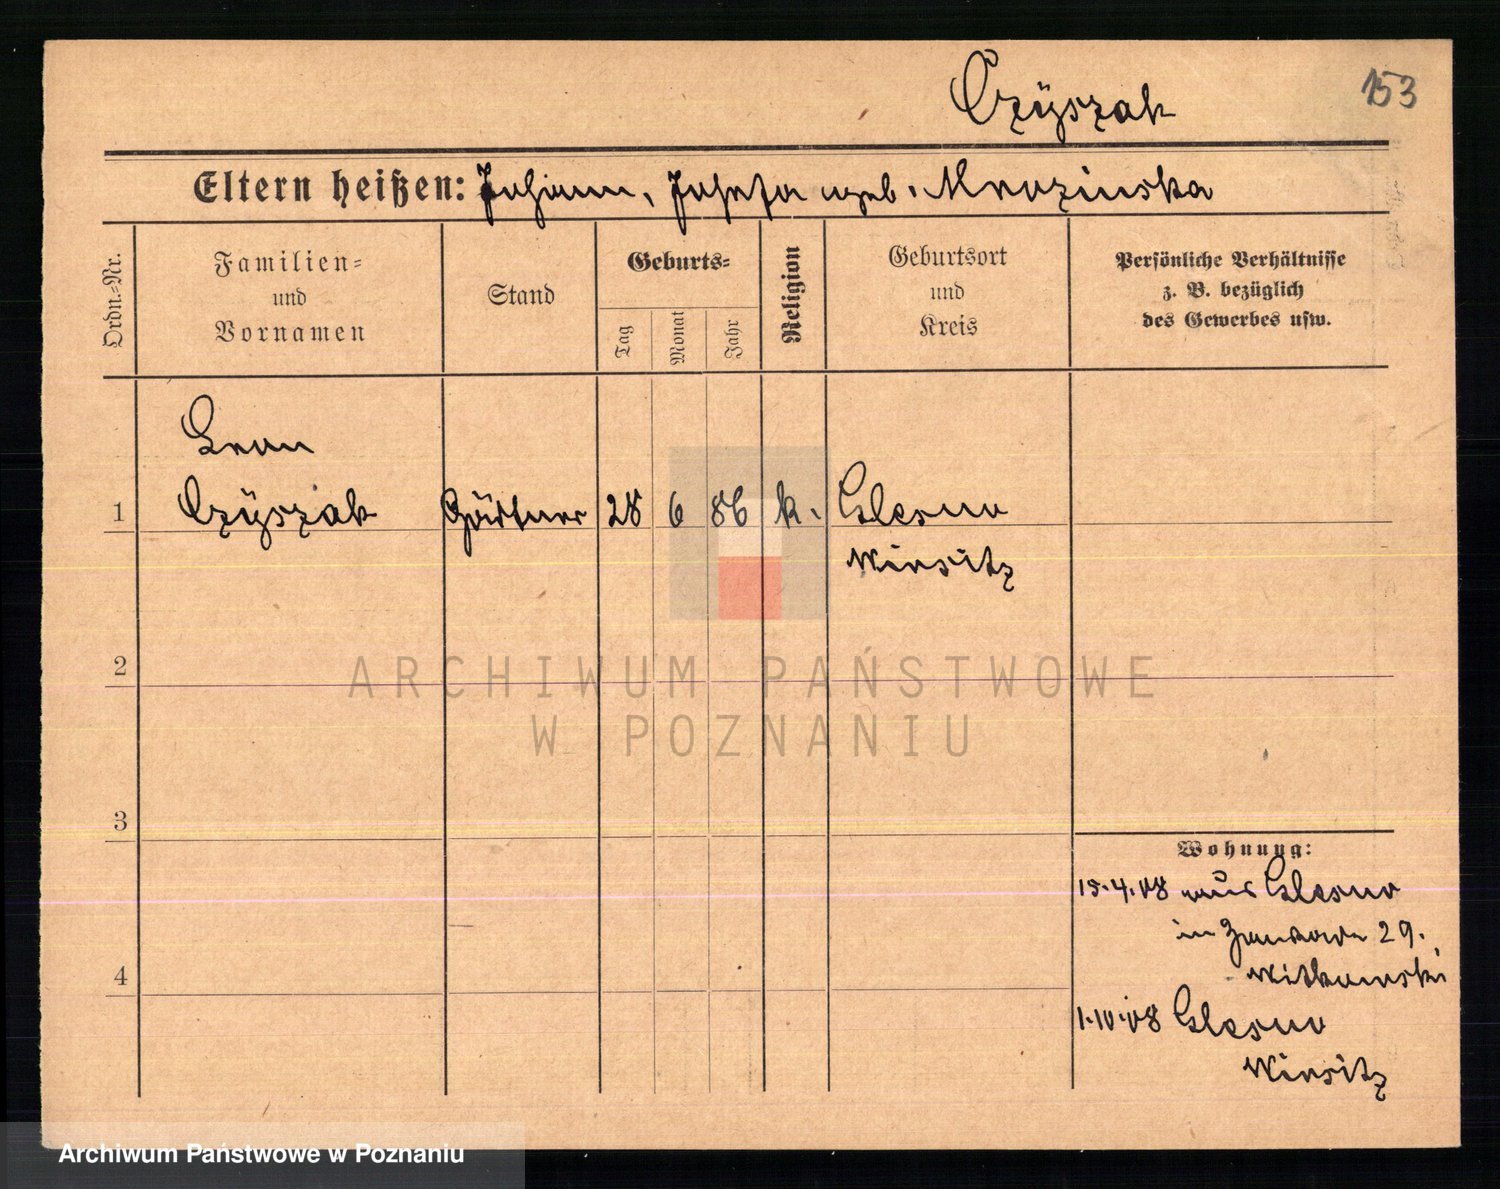 153
Czÿszak
Eltern heißen: Johann, Josefa geb. Mrozinska
Ordn.-Nr.
Familien-
und
Vornamen
Stand
Geburts-
Tag
Monat
Jahr
Religion
Geburtsort
und
Kreis
Persönliche Verhältnisse
z. B. bezüglich
des Gewerbes usw.
Leon
1 Czÿszak Gärtner 28 6 86 k. Glesno
Wirsitz
2
ARCHIWUM PAŃSTWOWE
W POZNANIU
3
Wohnung:
15.4.08 aus Glesno
in 29.
4
Witkowski
1.10.08 Glesno
Wirsitz
Archiwum Państwowe w Poznaniu